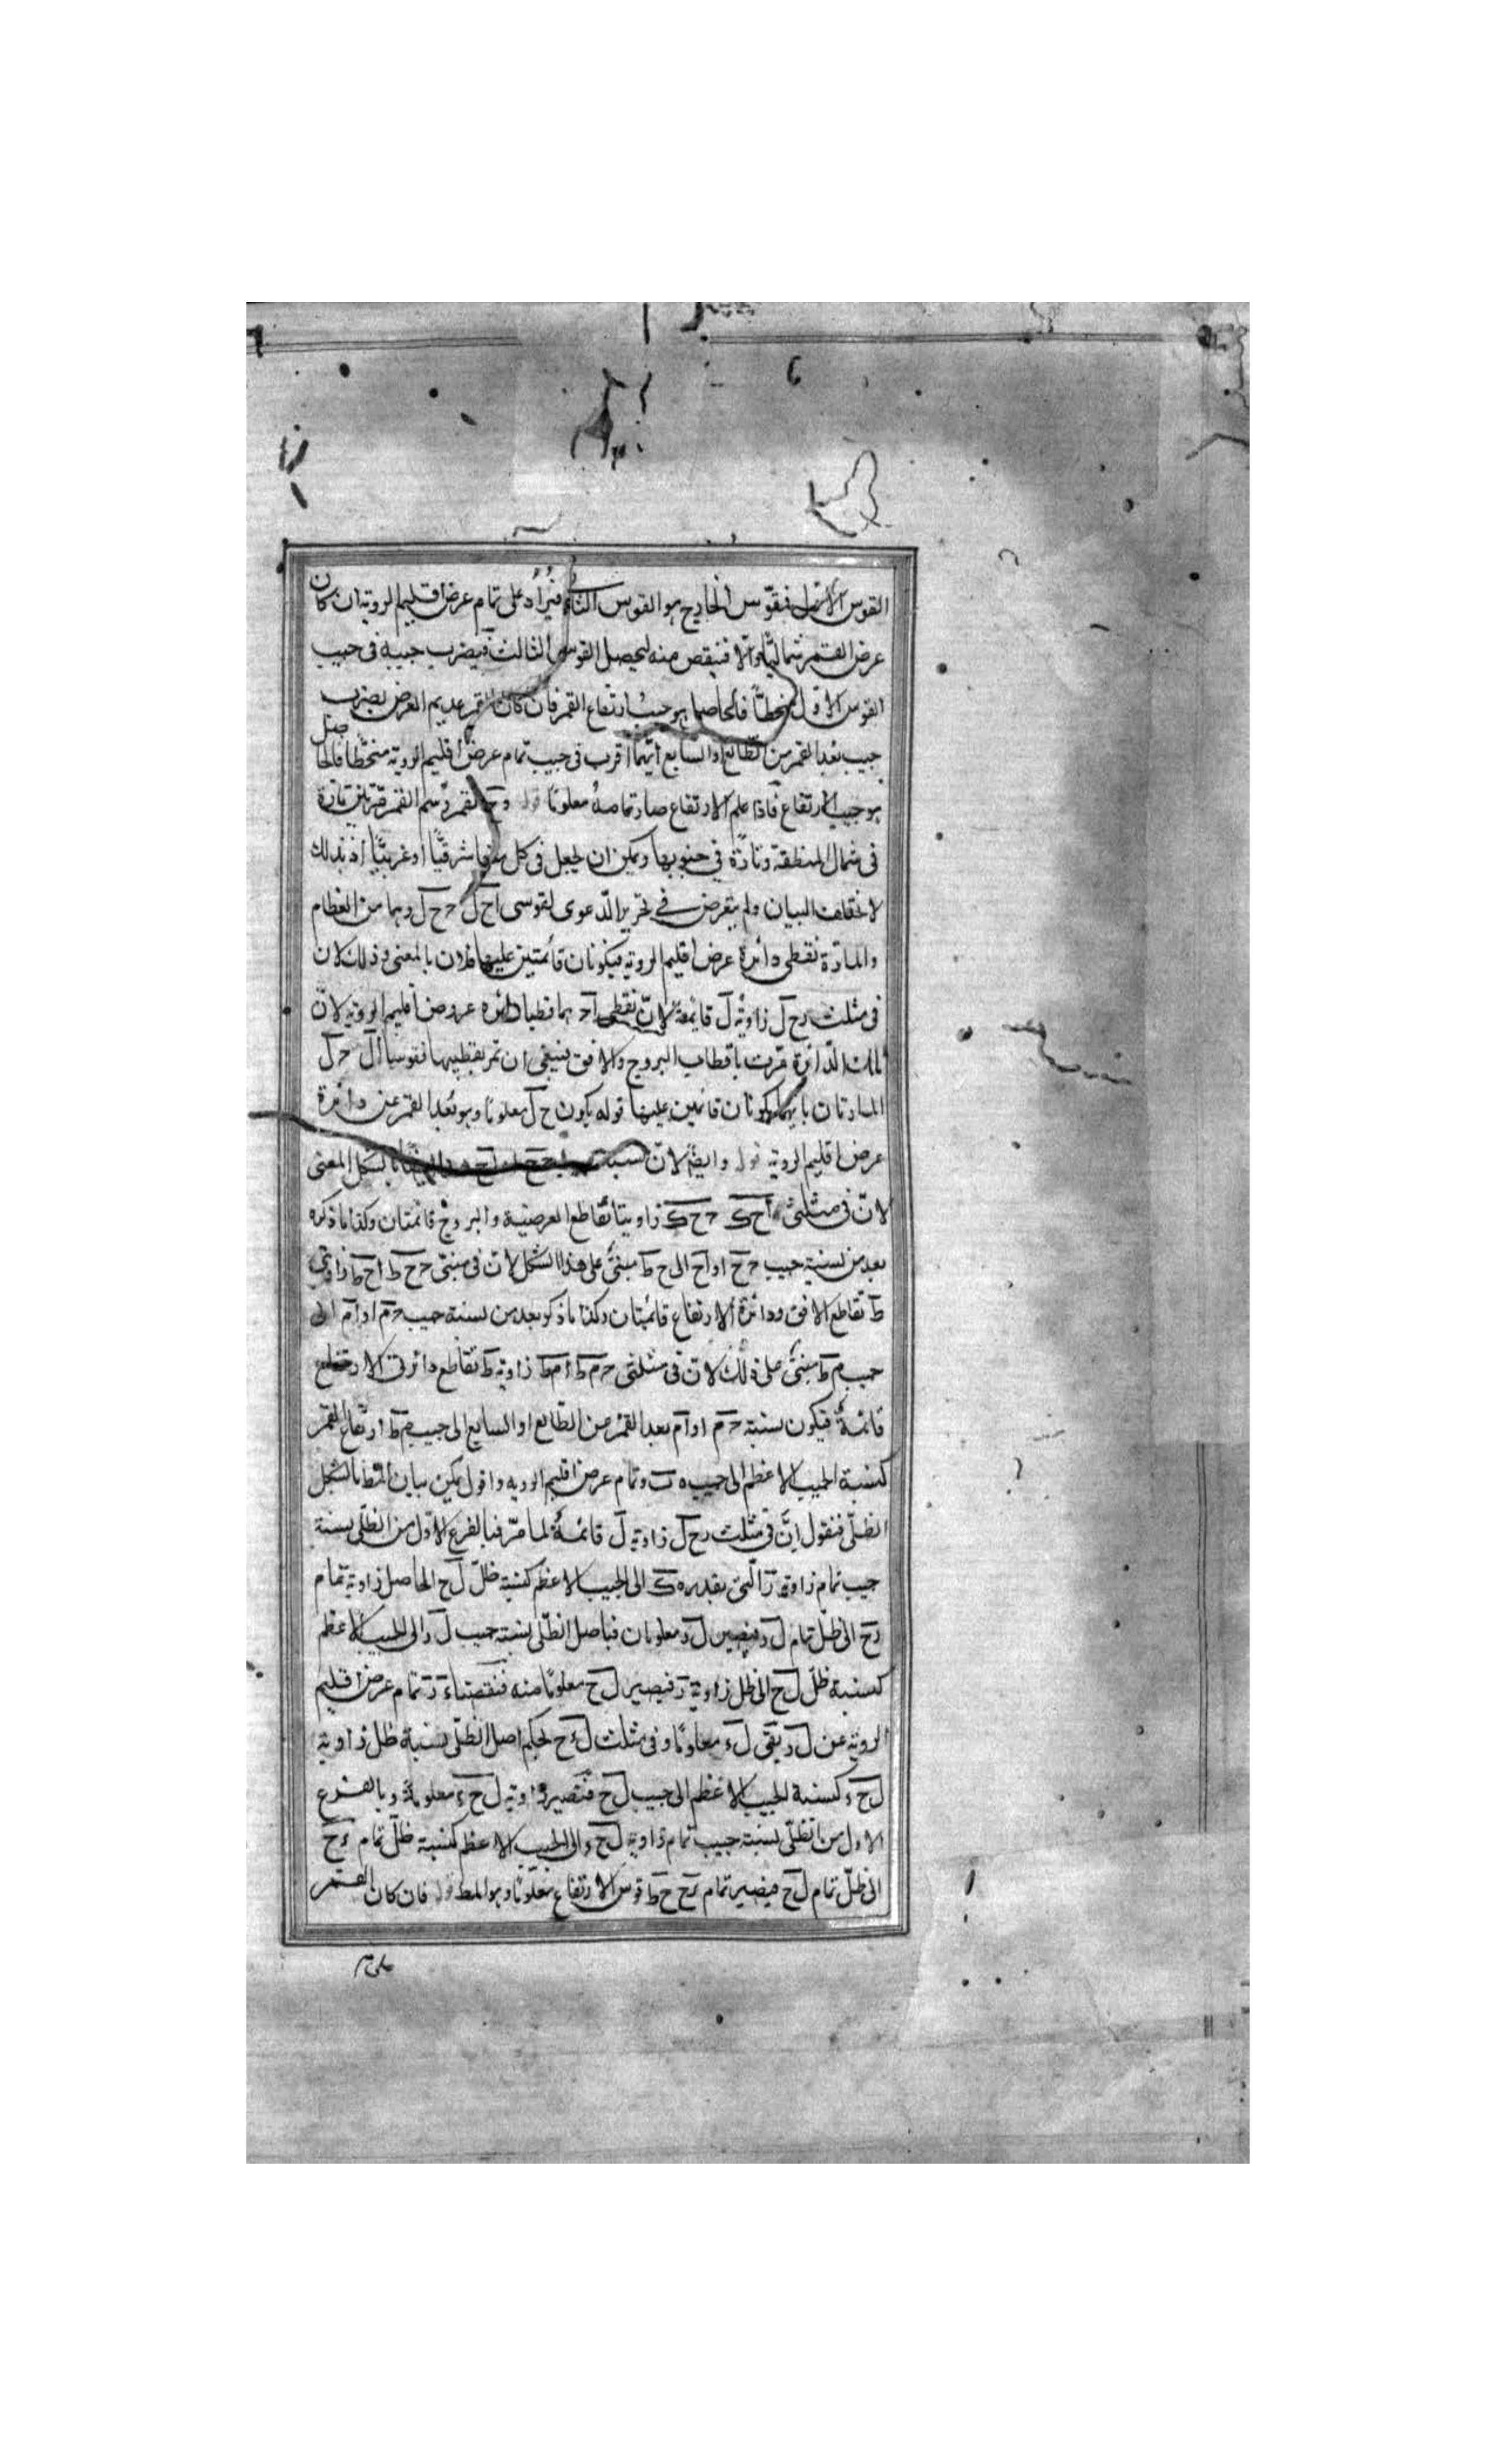 القوس الاول فنقوس الخارج هو القوس الثاني فيزاد على تمام عرض اقليم الروية ان كان
عرض القمر شماليا والا فنقص منه ليحصل القوس الثالث فيضرب جيبه فى جيب
القوس الاول منحطا فالحاصل هو جيب ارتفاع القمر فان كان القمر عديم العرض يضرب
جيب بعد القمر من الطالع او السابع ايهما اقرب فى جيب تمام عرض اقليم الروية منحطا فالحاصل
هو جيب الارتفاع فاذا علم الارتفاع صار تمامه معلوما قوله وح القمر رسم القمر مرتين تارة
فى شمال المنطقة وتارة فى جنوبها ويمكن ان يجعل فى كل منهما شرقيا او غربيا اذ بذلك
لا يختلف البيان ولم يتعرض فى تحرير الدعوى لقوسى اح ل حح ل وهما من العظام
والمارة بقطبى دائرة عرض اقليم الروية فيكونان قائمتين عليها فلان بالمغنى وذلك لان
فى مثلث رح ل زاوية ل قائمة لان نقطتى اح هما قطبا دائرة عروض اقليم الروية لان
تلك الدائرة مرت باقطاب البروج والافق فينبغى ان تمر بقطبيها فقوسا ال حل
المارتان بهما يكونان قائمين عليها قوله يكون ح ل معلوما وهو بعد القمر عن دائرة
عرض اقليم الروية قوله وايضا لان نسبة بالشكل المغنى
لان فى مثلثى اح ك حح ك زاويتا تقاطع العرضية والبروج قائمتان وكذا ما ذكره
بعد من نسبة جيب حح او اح الى ح ط مبنى على هذا الشكل لان فى مثلثى حح ط اح ط زاويتى
ط تقاطع الافق ودائرة الارتفاع قائمتان وكذا ما ذكر بعد من نسبة جيب حم او ام الى
جيب م ط مبنى على ذلك لان فى مثلثى حم ط ام ط زاوية ط تقاطع دائرتى الارتفاع
قائمة فيكون نسبة حم او ام بعد القمر من الطالع او السابع الى جيب م ط ارتفاع القمر
كنسبة الجيب الاعظم الى جيب تمام عرض اقليم الروية واقول يمكن بيان المط بالشكل
الظلى فنقول ان فى مثلث رح ل زاوية ل قائمة لما مر فبالفرع الاول من الظلى نسبة
جيب تمام زاوية ر التى بقدر ه ك الى الجيب الاعظم كنسبة ظل ل ح الحاصل زاوية تمام
رح الى ظل تمام ل ر فيصير ل ر معلومان فباصل الظلى نسبة جيب ل ر الى الجيب الاعظم
كنسبة ظل ل ح الى ظل زاوية ر فيصير ل ح معلوما منه فنقصنا ء ر تمام عرض اقليم
الروية عن ل ر بقى ل ء معلوما وفى مثلث ل ء ح بحكم اصل الظلى نسبة ظل زاوية
ل ح ء كنسبة الجيب الاعظم الى جيب ل ح فتصير زاوية ل ح ء معلومة وبالفرع
الاول من الظلى نسبة جيب تمام زاوية ل ح ء الى الجيب الاعظم كنسبة ظل تمام ء ح
الى ظل تمام ل ح فيصير تمام ء ح ح ط قوس الارتفاع معلوما وهو المط قوله فان كان القمر